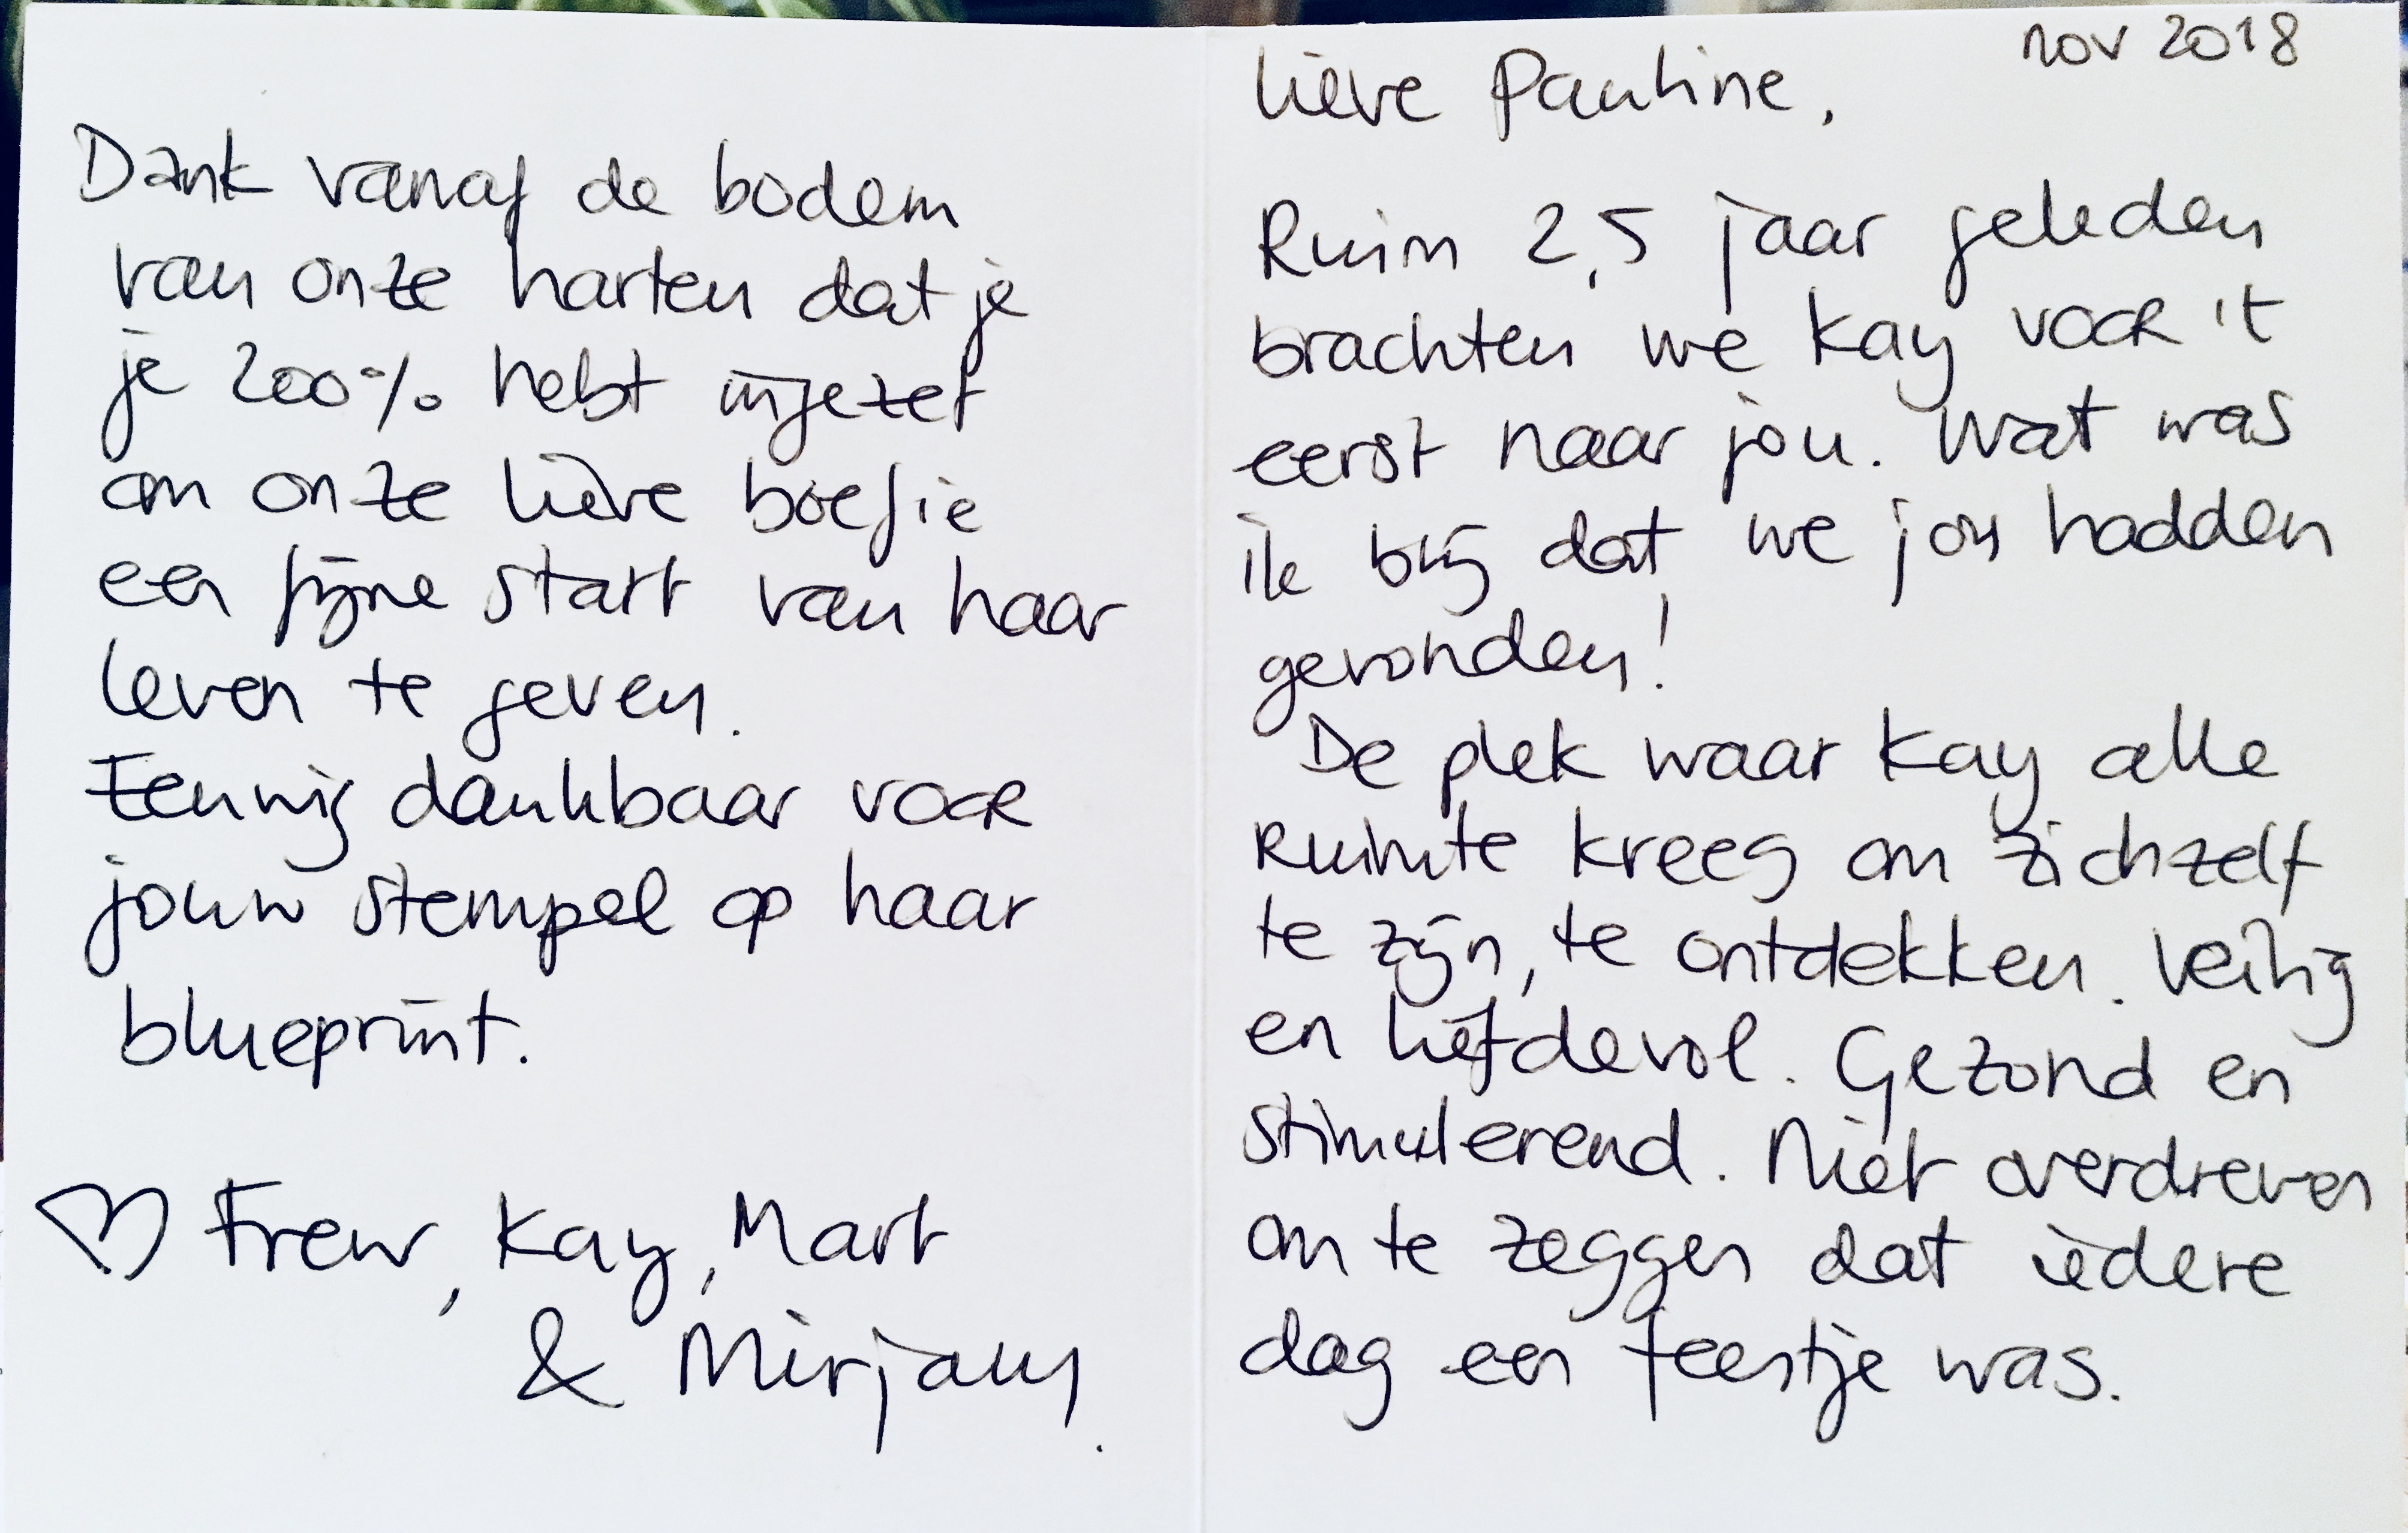 nov 2018
Lieve Pauline,
Ruim 2,5 jaar geleden
brachten we Kay voor 't
eerst naar jou. Wat was
ik blij dat we jou hadden
gevonden!
De plek waar Kay alle
ruimte kreeg om zichzelf
te zijn, te ontdekken. Veilig
en liefdevol. Gezond en
stimulerend. Niet overdreven
om te zeggen dat iedere
dag een feestje was.
Dank vanaf de bodem
van onze harten dat je
je 200% hebt ingezet
om onze lieve boefie
een fijne start van haar
leven te geven.
Eeuwig dankbaar voor
jouw stempel op haar
blueprint.
♡ Frew, Kay, Mart
& Mirjam.